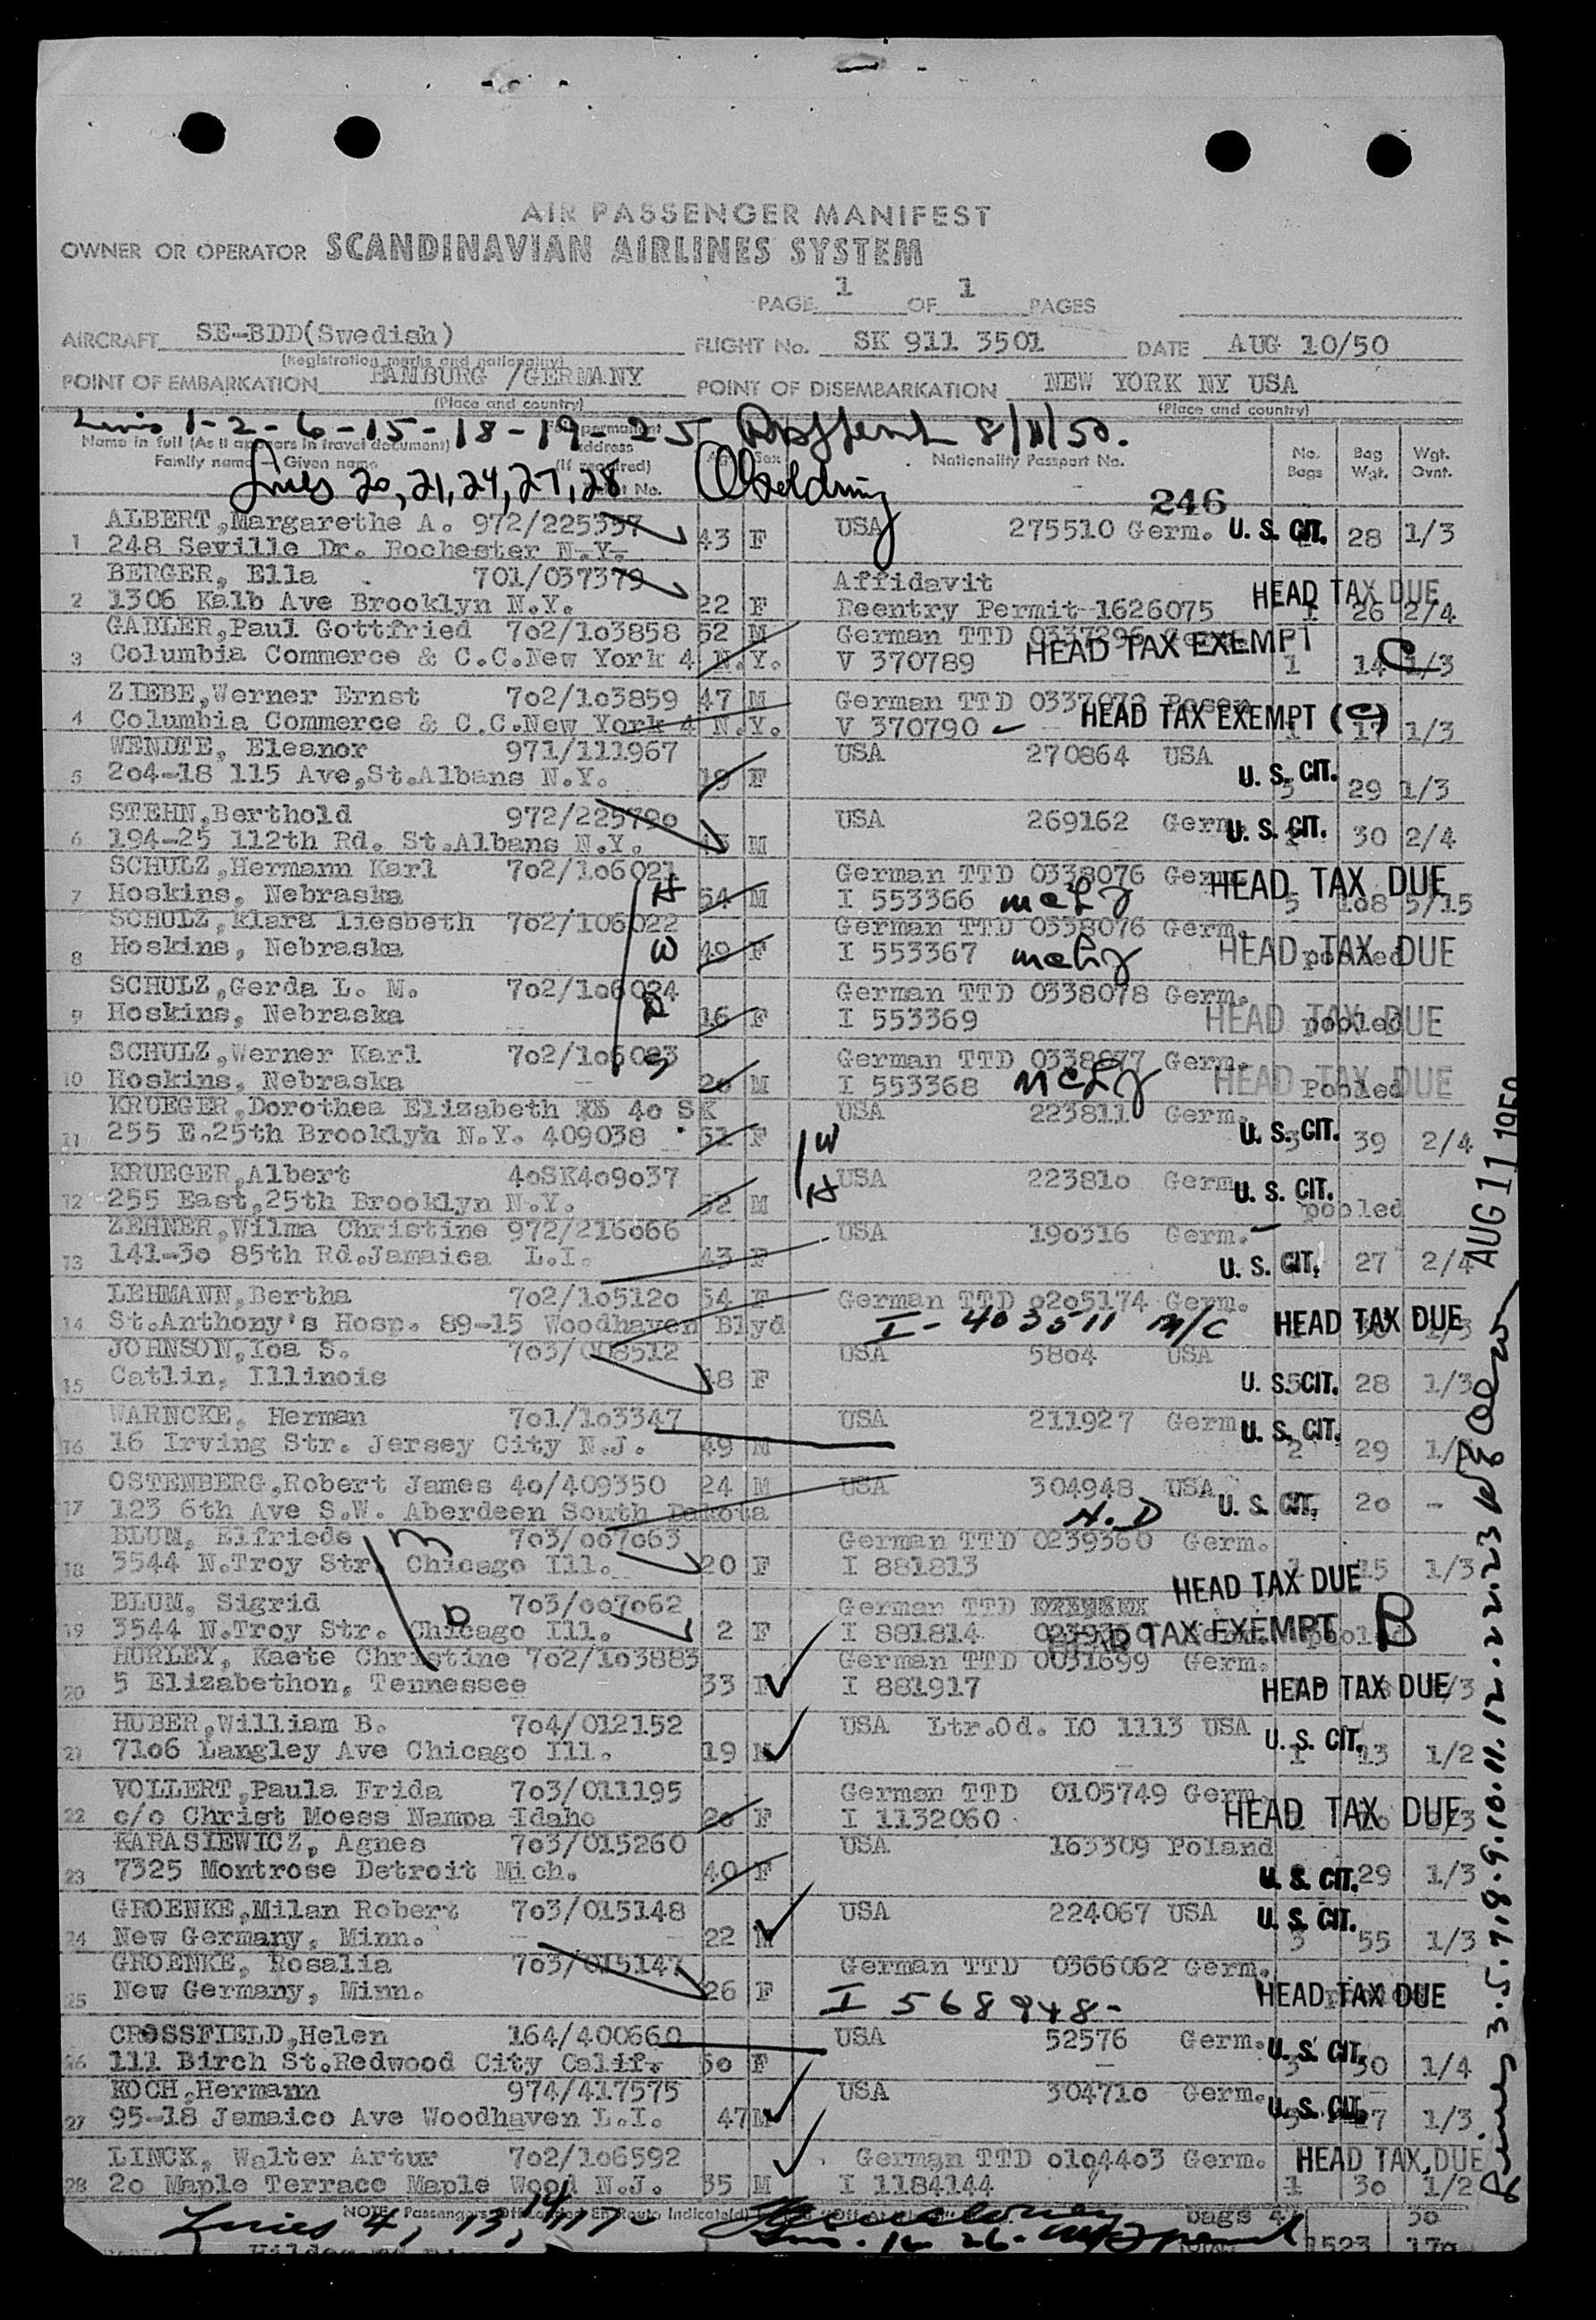 AIR PASSENGER MANIFEST
OWNER OR OPERATOR SCANDINAVIAN AIRLINES SYSTEM
PAGE 1 OF 1 PAGES
AIRCRAFT SE-BDD(Swedish) FLIGHT No. SK 911 3501 DATE AUG 10/50
(Registration marks and nationality)
POINT OF EMBARKATION HAMBURG /GERMANY POINT OF DISEMBARKATION NEW YORK NY USA
(Place and country) (Place and country)
1-2-6-15-18-19-25 8/11/50.
Name in full (As it appears in travel document) permanent address No. Bags Bag Wgt. Wgt. Ovnt.
Family name - Given name (If required) Age Sex Nationality Passport No.
Lines 20, 21, 24, 27, 28 No.
246
ALBERT,Margarethe A. 972/225357 USA 275510 Germ. U. S. CIT.
1 248 Seville Dr. Rochester N.Y. 43 F 28 1/3
BERGER, Ella 701/037379 Affidavit HEAD TAX DUE
2 1306 Kalb Ave Brooklyn N.Y. 22 F Reentry Permit 1626075 1 26 2/4
GADLER,Paul Gottfried 702/103858 52 M German TTD HEAD TAX EXEMPT C
3 Columbia Commerce & C.C.New York 4 N.Y. V 370789 1 14 1/3
ZIEBE,Werner Ernst 702/103859 47 M German TTD 0337072 Posen HEAD TAX EXEMPT (C)
4 Columbia Commerce & C.C.New York 4 N.Y. V 370790 1 17 1/3
WENDTE, Eleanor 971/111967 USA 270864 USA U. S. CIT.
5 204-18 115 Ave,St.Albans N.Y. 19 F 3 29 1/3
STEHN,Berthold 972/225790 USA 269162 Germ. U. S. CIT.
6 194-25 112th Rd. St.Albans N.Y. M 30 2/4
SCHULZ,Hermann Karl 702/106021 German TTD 0338076 Germ. HEAD TAX DUE
7 Hoskins, Nebraska H 54 M I 553366 5 108 5/15
SCHULZ,klara liesbeth 702/106022 German TTD 0338076 Germ. HEAD TAX DUE
8 Hoskins, Nebraska W 49 F I 553367 pooled
SCHULZ,Gerda L. M. 702/106024 German TTD 0338078 Germ. HEAD TAX DUE
9 Hoskins, Nebraska D 16 F I 553369 pooled
SCHULZ,Werner Karl 702/106023 German TTD 0338077 Germ. HEAD TAX DUE
10 Hoskins, Nebraska S 20 M I 553368 Pooled
KRUEGER,Dorothea Elizabeth 40 SK USA 223811 Germ. U. S. CIT.
11 255 E.25th Brooklyn N.Y. 409038 51 F W 3 39 2/4
KRUEGER,Albert 40SK409037 H USA 223810 Germ. U. S. CIT.
12 255 East,25th Brooklyn N.Y. 52 M pooled
ZEHNER,Wilma Christine 972/216066 USA 190316 Germ.
13 141-30 85th Rd.Jamaica L.I. 43 F U. S. CIT. 27 2/4
LEHMANN,Bertha 702/105120 54 F German TTD 0205174 Germ.
14 St.Anthony's Hosp. 89-15 Woodhaven Blvd I-403511 M/C HEAD TAX DUE 1/3
JOHNSON,Ioa S. 703/008512 USA 5804 USA
15 Catlin, Illinois F U. S. CIT. 5 28 1/3
WARNCKE, Herman 701/103347 USA 211927 Germ. U. S. CIT.
16 16 Irving Str. Jersey City N.J. 49 M 2 29
OSTENBERG,Robert James 40/409350 24 M USA 304948 USA U. S. CIT.
17 123 6th Ave S.W. Aberdeen South Dakota N.D 20 -
BLUM, Elfriede M 703/007063 German TTD 0239360 Germ.
18 3544 N.Troy Str. Chicago Ill. 20 F I 881813 HEAD TAX DUE 1 15 1/3
BLUM, Sigrid D 703/007062 German TTD
19 3544 N.Troy Str. Chicago Ill. 2 F I 881814 HEAD TAX EXEMPT B pooled
HURLEY, Kaete Christine 702/103883 German TTD 0031699 Germ.
20 5 Elizabethon, Tennessee 33 F I 881917 HEAD TAX DUE 1/3
HUBER,William B. 704/012152 USA Ltr.Od. IO 1113 USA U. S. CIT.
21 7106 Langley Ave Chicago Ill. 19 M 1 13 1/2
VOLLERT,Paula Frida 703/011195 German TTD 0105749 Germ. HEAD TAX DUE
22 c/o Christ Moess Nampa Idaho 20 F I 1132060 1/3
KARASIEWICZ, Agnes 703/015260 USA 163309 Poland
23 7325 Montrose Detroit Mich. 40 F U. S. CIT. 29 1/3
GROENKE,Milan Robert 703/015148 USA 224067 USA U. S. CIT.
24 New Germany, Minn. 22 M 3 55 1/3
GROENKE, Rosalia 703/015147 German TTD 0366062 Germ.
25 New Germany, Minn. 26 F I 568948- HEAD TAX DUE
CROSSFIELD,Helen 164/400660 USA 52576 Germ. U. S. CIT.
26 111 Birch St.Redwood City Calif. 50 F 3 30 1/4
KOCH,Hermann 974/417575 USA 304710 Germ. U. S. CIT.
27 95-18 Jamaico Ave Woodhaven L.I. 47 M 27 1/3
LINCK, Walter Artur 702/106592 German TTD 0104403 Germ. HEAD TAX DUE
28 20 Maple Terrace Maple Wood N.J. 35 M I 1184144 1 30 1/2
NOTE: Passengers En Route Indicate(d)
Lines 4, 13, 14, 17 bags
1523 170
AUG 11 1950
Lines 3.5.7.8.9.10.11.12.22.23